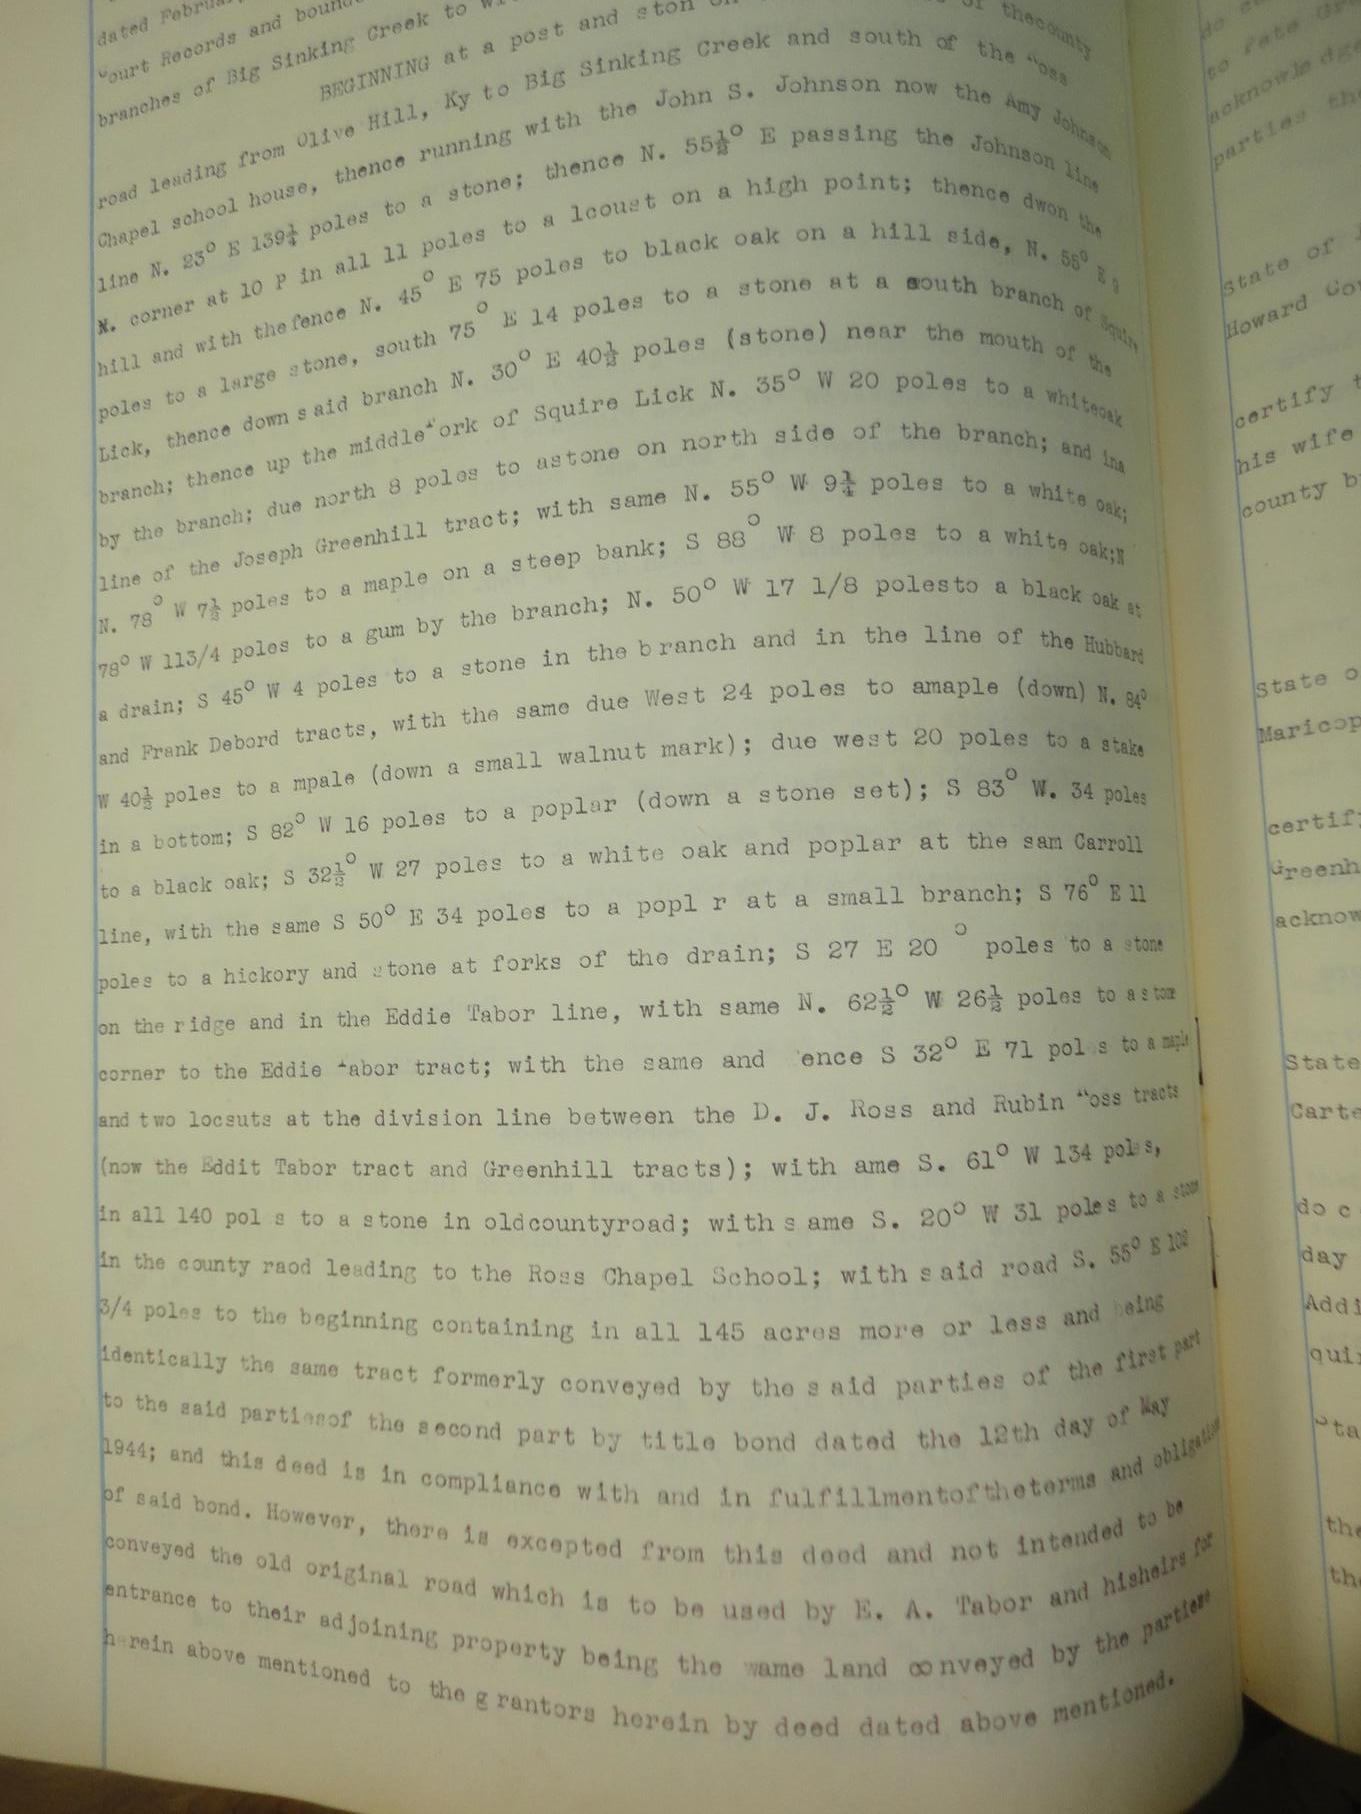 dated
ourt Records and
branches of Big Sinking Creek to
BEGINNING at a post and ston thecounty
road leading from Olive Hill, Ky to Big Sinking Creek and south of the "oss
Chapel school house, thence running with the John S. Johnson now the Amy Johnson
line N. 23° E 139¼ poles to a stone; thence N. 55½° E passing the Johnson line
N. corner at 10 P in all 11 poles to a lcoust on a high point; thence dwon the
hill and with thefence N. 45° E 75 poles to black oak on a hill side, N. 55° E 9
poles to a large stone, south 75° E 14 poles to a stone at a south branch of Squire
Lick, thence down said branch N. 30° E 40½ poles (stone) near the mouth of the
branch; thence up the middle"ork of Squire Lick N. 35° W 20 poles to a whiteoak
by the branch; due north 8 poles to astone on north side of the branch; and ina
line of the Joseph Greenhill tract; with same N. 55° W 9¼ poles to a white oak;
N. 78° W 7½ poles to a maple on a steep bank; S 88° W 8 poles to a white oak;N
78° W 113/4 poles to a gum by the branch; N. 50° W 17 1/8 polesto a black oak at
a drain; S 45° W 4 poles to a stone in the branch and in the line of the Hubbard
and Frank Debord tracts, with the same due West 24 poles to amaple (down) N. 84°
W 40½ poles to a mpale (down a small walnut mark); due west 20 poles to a stake
in a bottom; S 82° W 16 poles to a poplar (down a stone set); S 83° W. 34 poles
to a black oak; S 32½° W 27 poles to a white oak and poplar at the sam Carroll
line, with the same S 50° E 34 poles to a popl r at a small branch; S 76° E 11
poles to a hickory and stone at forks of the drain; S 27 E 20 ° poles to a stone
on the ridge and in the Eddie Tabor line, with same N. 62½° W 26½ poles to a stone
corner to the Eddie "abor tract; with the same and  ence S 32° E 71 pol s to a maple
and two locsuts at the division line between the D. J. Ross and Rubin "oss tracts
(now the Eddit Tabor tract and Greenhill tracts); with ame S. 61° W 134 poles,
in all 140 pol s to a stone in oldcountyroad; with same S. 20° W 31 poles to a stone
in the county raod leading to the Ross Chapel School; with said road S. 55° E 102
3/4 poles to the beginning containing in all 145 acres more or less and being
identically the same tract formerly conveyed by the said parties of the first part
to the said partiesof the second part by title bond dated the 12th day of May
1944; and this deed is in compliance with and in fulfillmentoftheterms and obligation
of said bond. However, there is excepted from this deed and not intended to be
conveyed the old original road which is to be used by E. A. Tabor and hisheirs for
entrance to their adjoining property being the wame land conveyed by the partiese
herein above mentioned to the grantors herein by deed dated above mentioned.
to Pete
acknowledge
parties
State of
Howard
certify
his wife
county b
State o
Maricop
certify
Greenh
acknow
State
Carte
do c
day
Addi
quir
"ta
the
the